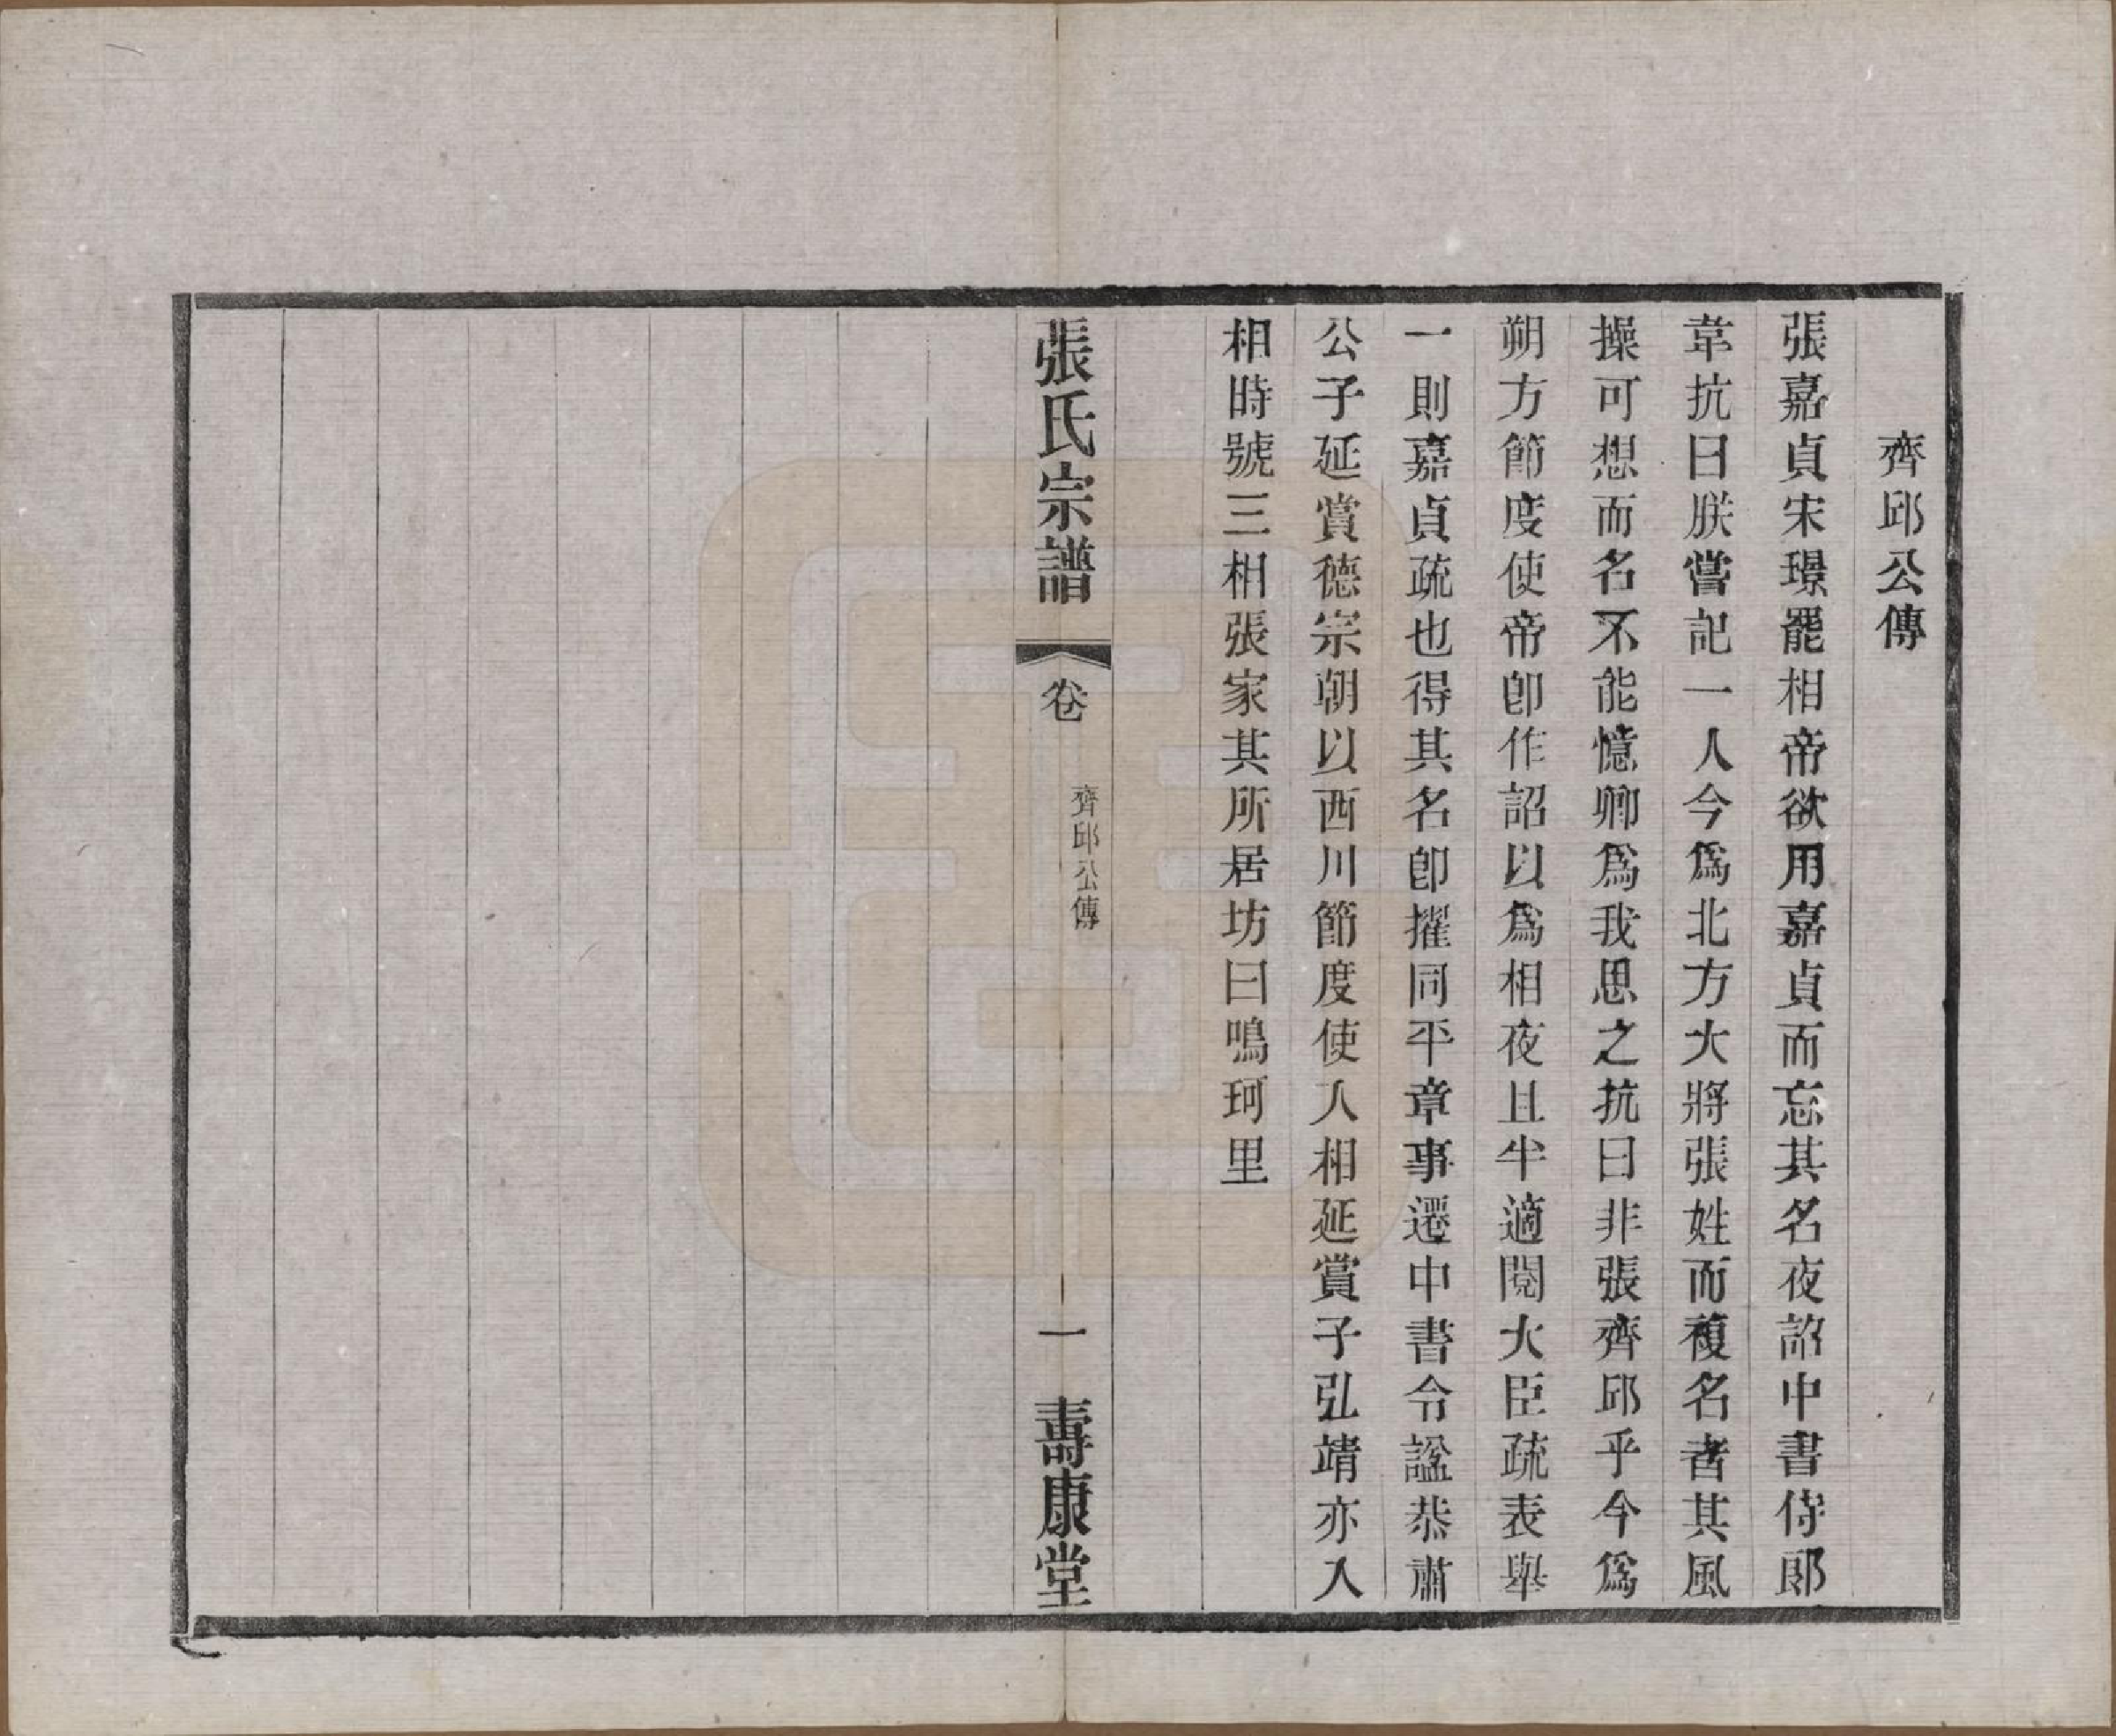 齊邱公傳
張嘉貞宋璟罷相帝欲用嘉貞而忘其名夜詔中書侍郎
韋抗曰朕嘗記一人今爲北方大將張姓而複名者其風
操可想而名不能憶卿爲我思之抗曰非張齊邱乎今爲
朔方節度使帝卽作詔以爲相夜且半適閱大臣疏表舉
一則嘉貞疏也得其名卽擢同平章事遷中書令諡恭肅
公子延賞德宗朝以西川節度使入相延賞子弘靖亦入
相時號三相張家其所居坊曰鳴珂里
張氏宗譜
卷
齊邱公傳
一
壽康堂